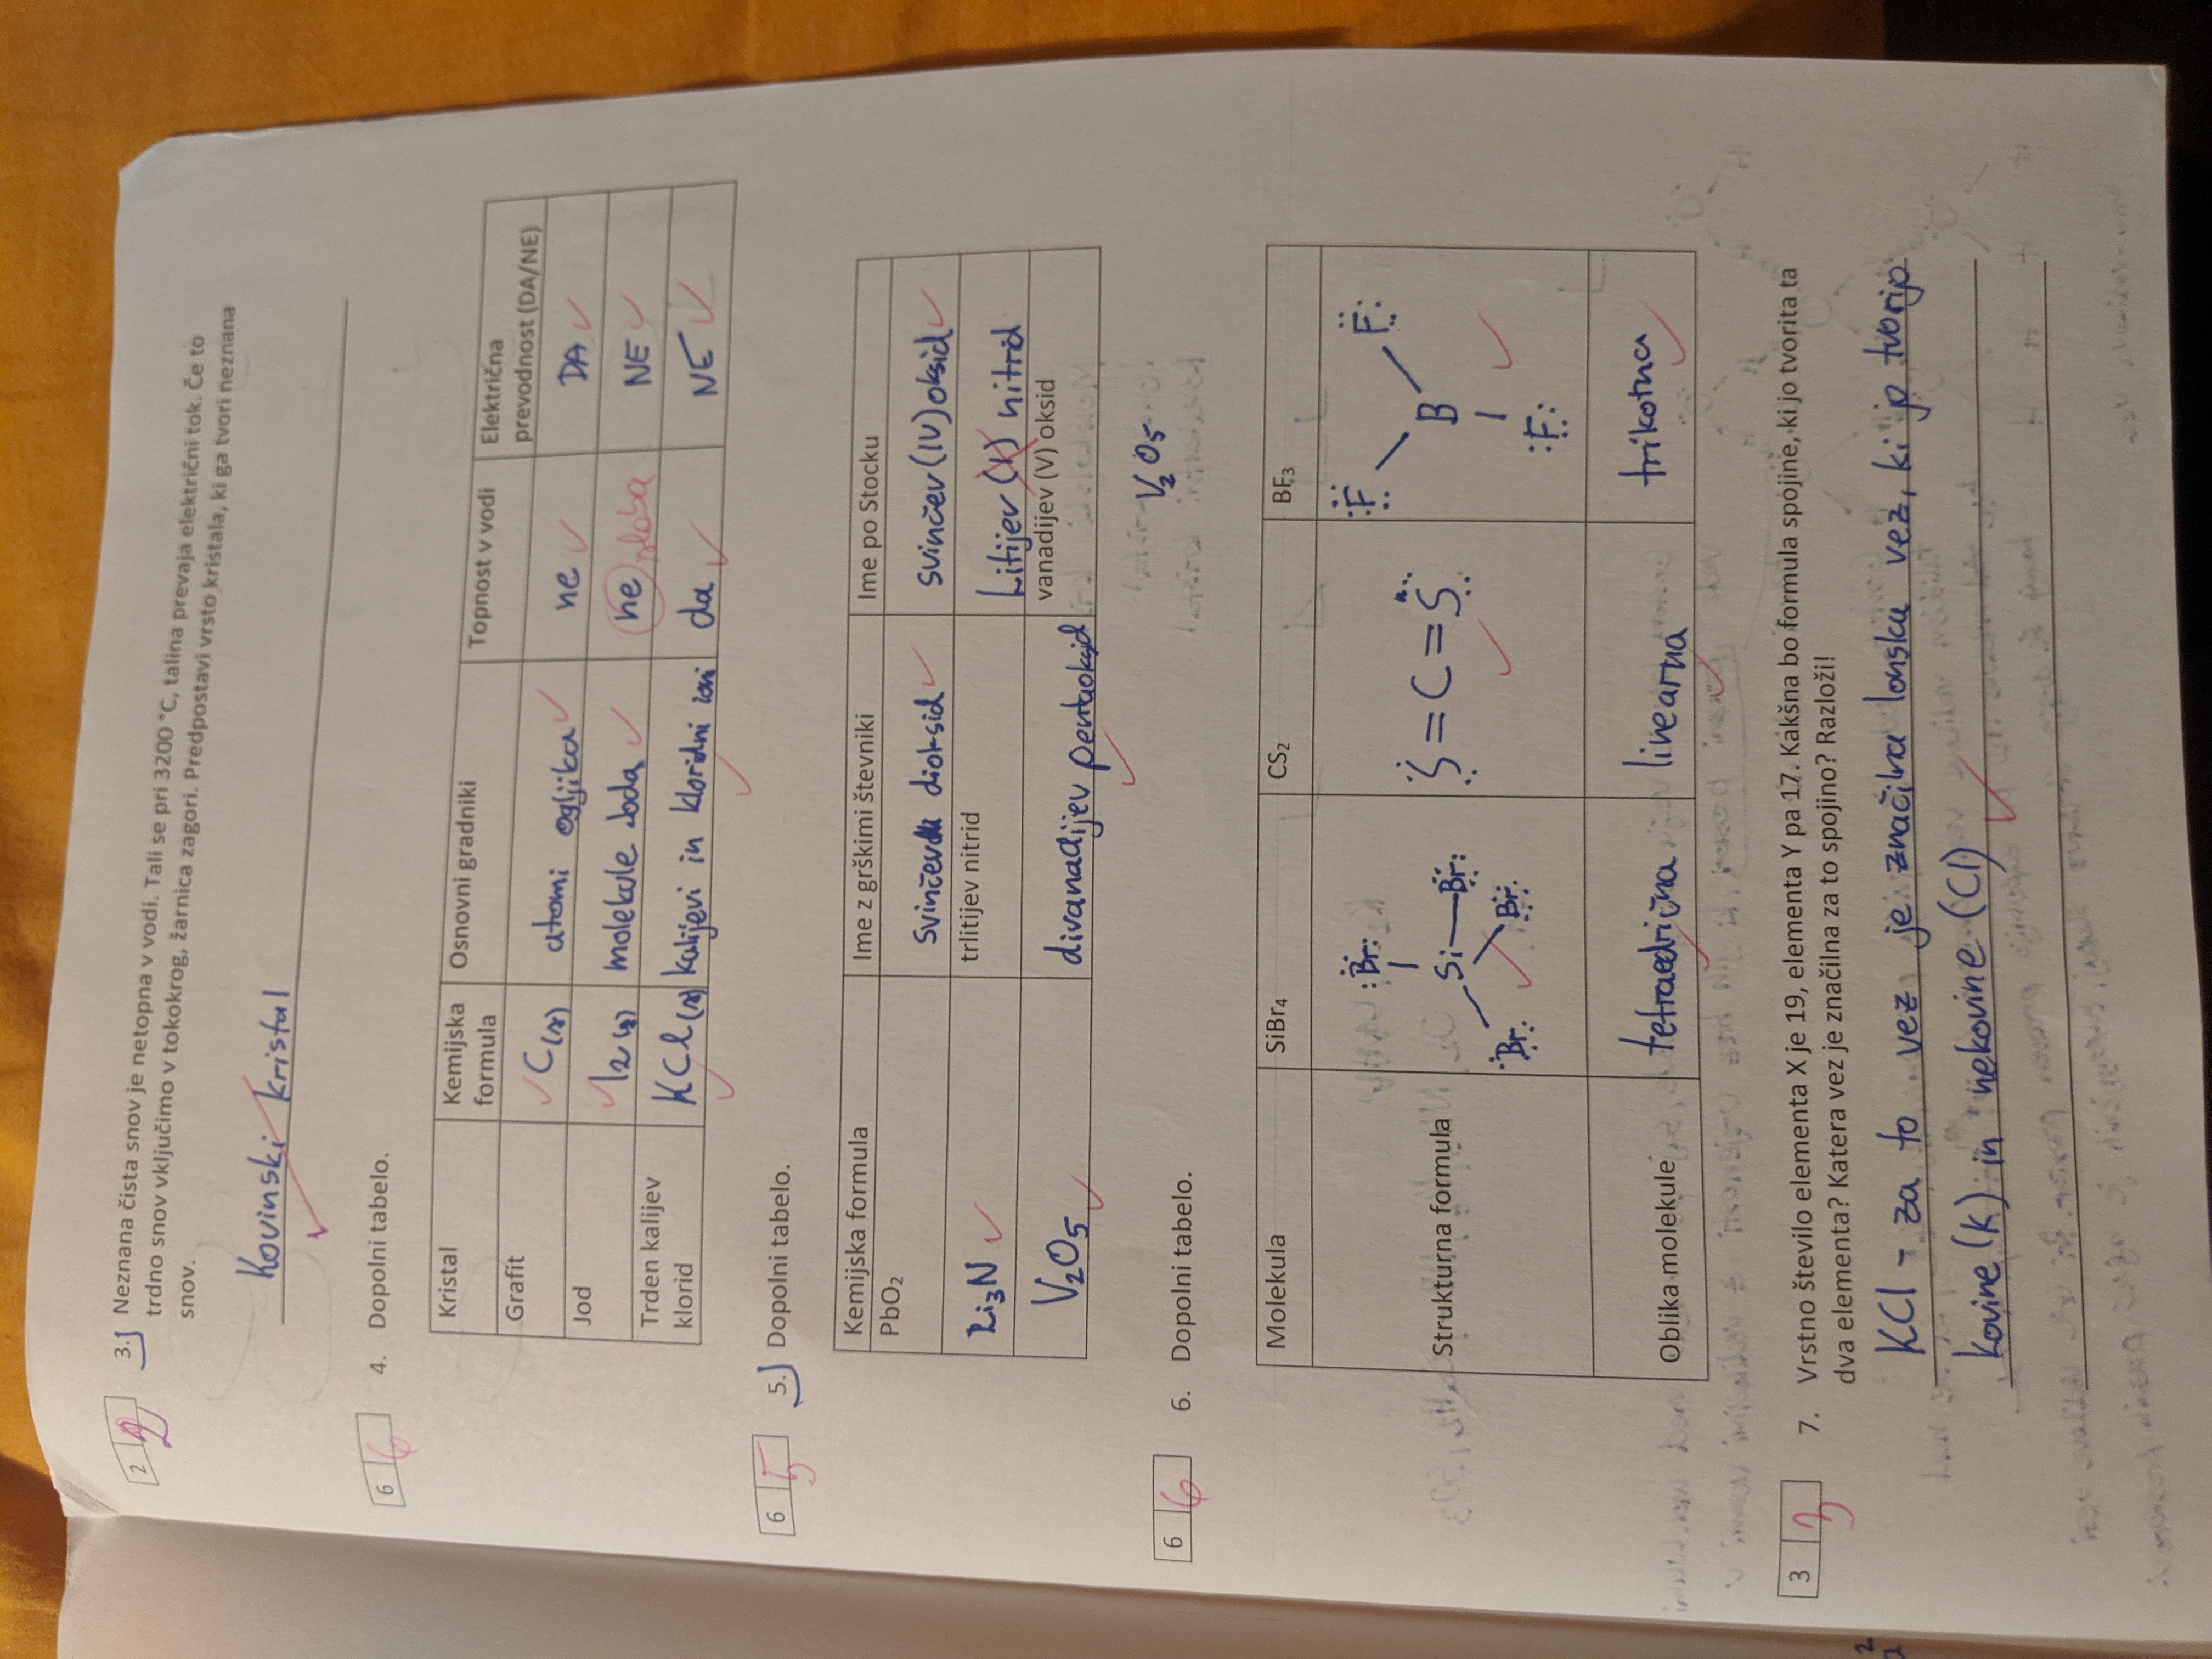 2 2 3. Neznana čista snov je netopna v vodi. Tali se pri 3200 °C, talina prevaja električni tok. Če to
trdno snov vključimo v tokokrog, žarnica zagori. Predpostavi vrsto kristala, ki ga tvori neznana
snov.
Kovinski kristal
6 6 4. Dopolni tabelo.
Kristal Kemijska formula Osnovni gradniki Topnost v vodi Električna prevodnost (DA/NE)
Grafit C(s) atomi ogljika ne DA
Jod I2(s) molekule Joda ne slaba NE
Trden kalijev klorid KCl(s) kalijevi in kloridni ioni da NE
6 5 5. Dopolni tabelo.
Kemijska formula Ime z grškimi števniki Ime po Stocku
PbO2 svinčev dioksid svinčev(IV)oksid
Li3N trlitijev nitrid Litijev (I) nitrid
V2O5 divanadijev pentaoksid vanadijev (V) oksid
V2O5
6 6 6. Dopolni tabelo.
Molekula SiBr4 CS2 BF3
Strukturna formula
Br
Si—Br
Br Br
S=C=S
F F
B
F
Oblika molekule tetraedrična linearna trikotna
3 3 7. Vrstno število elementa X je 19, elementa Y pa 17. Kakšna bo formula spojine, ki jo tvorita ta
dva elementa? Katera vez je značilna za to spojino? Razloži!
KCl - za to vez je značilna Ionska vez, ki jo tvorijo
kovine (K) in nekovine (Cl)